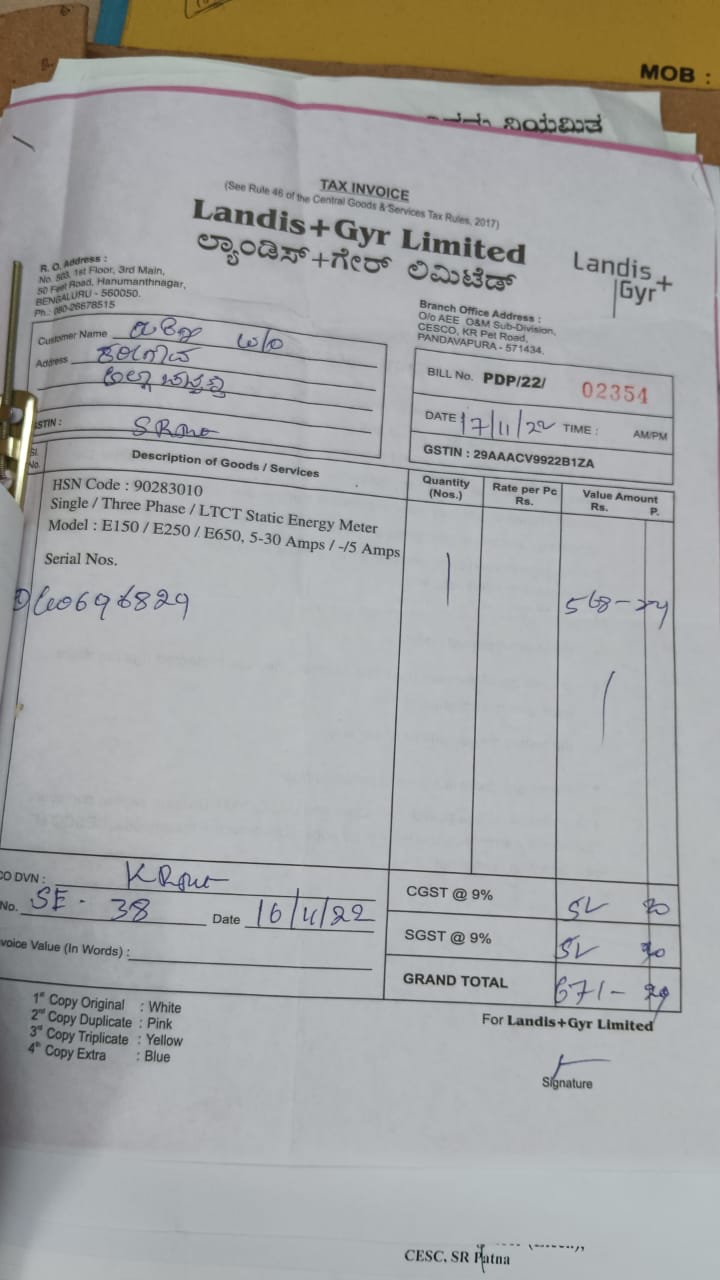 MOB :
ನಿಯಮಿತ
TAX INVOICE
(See Rule 46 of the Central Goods & Services Tax Rules, 2017)
Landis+Gyr Limited
ಲ್ಯಾಂಡಿಸ್+ಗೇರ್ ಲಿಮಿಟೆಡ್
Landis+
Gyr
R. O. Address :
No. 503, 1st Floor, 3rd Main,
50 Feet Road, Hanumanthnagar,
BENGALURU - 560050.
Ph.: 080-26678515
Branch Office Address :
O/o AEE O&M Sub-Division,
CESCO, KR Pet Road,
PANDAVAPURA - 571434.
Customer Name W/o
Address
STIN :
BILL No. PDP/22/ 02354
DATE 17/11/22 TIME : AM/PM
GSTIN : 29AAACV9922B1ZA
Sl. No. Description of Goods / Services Quantity (Nos.) Rate per Pc Rs. Value Amount Rs. P.
HSN Code : 90283010
Single / Three Phase / LTCT Static Energy Meter
Model : E150 / E250 / E650, 5-30 Amps / -/5 Amps
1
Serial Nos.
568-
CO DVN :
No. SE - 38 Date 16/11/22
voice Value (In Words) :
CGST @ 9%
SGST @ 9%
GRAND TOTAL 671-
1st Copy Original : White
2nd Copy Duplicate : Pink
3rd Copy Triplicate : Yellow
4th Copy Extra : Blue
For Landis+Gyr Limited
Signature
CESC, SR Patna